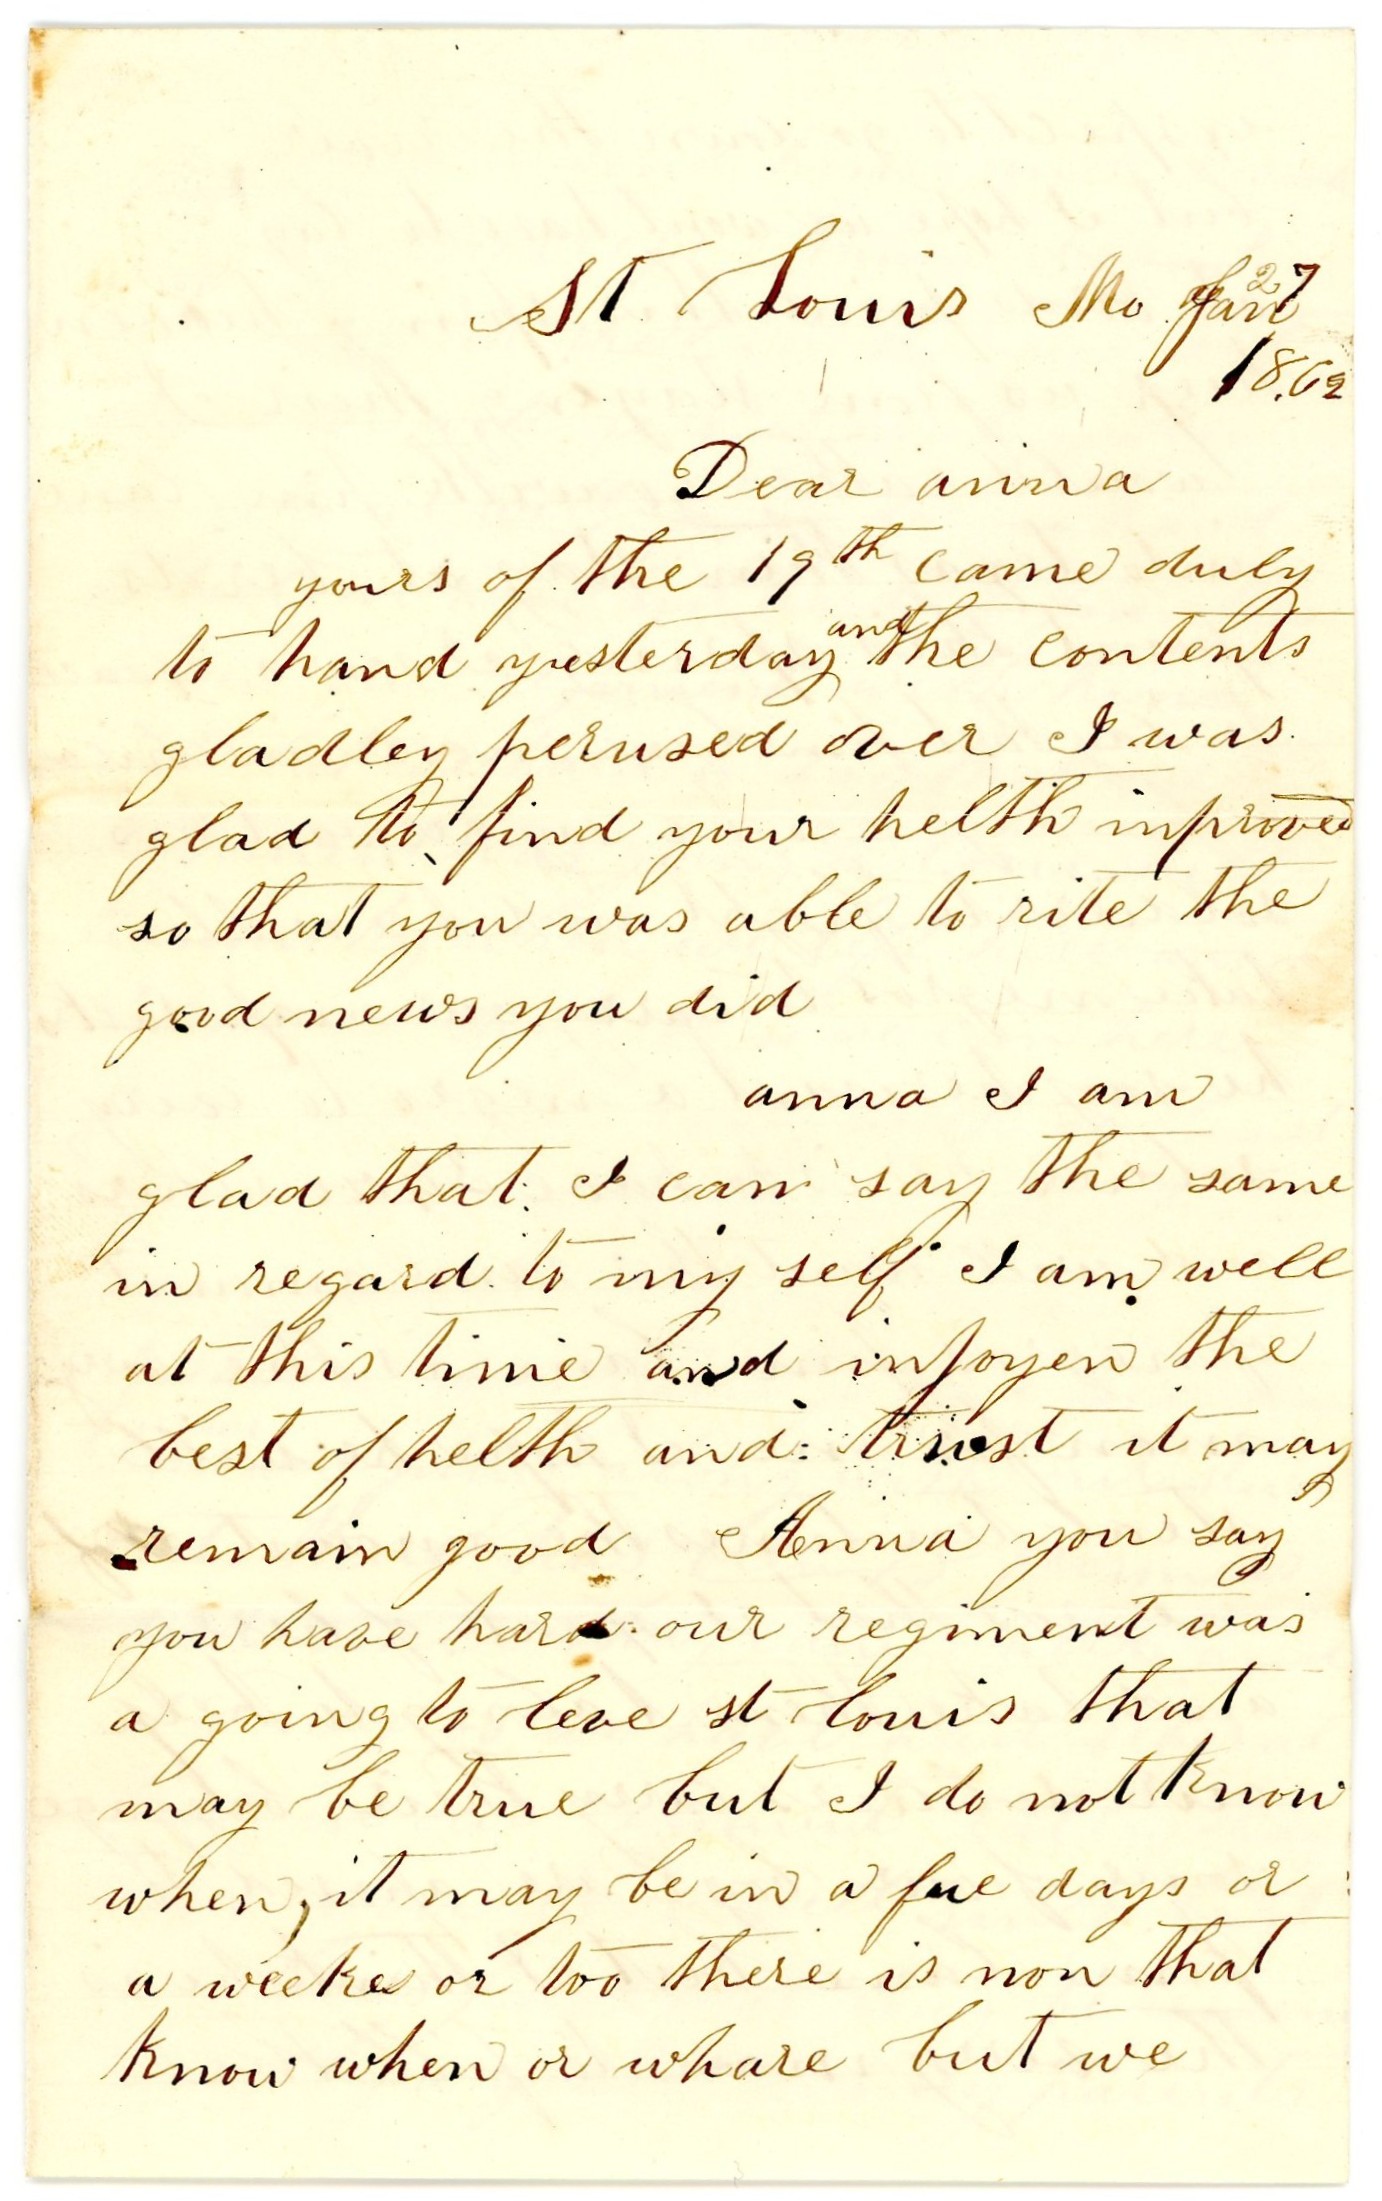 St Louis Mo Jan 27
1862
Dear anna
yours of the 19th came duly
to hand yesterday and the contents
gladley perused over I was
glad to find your helth inproved
so that you was able to rite the
good news you did
anna I am
glad that I can say the same
in regard to my self I am well
at this time and injoyen the
best of helth and trust it may
remain good Anna you say
you have hard our regiment was
a going to leve st louis that
may be true but I do not know
when, it may be in a fue days or
a weeke or too there is non that
know when or whare but we